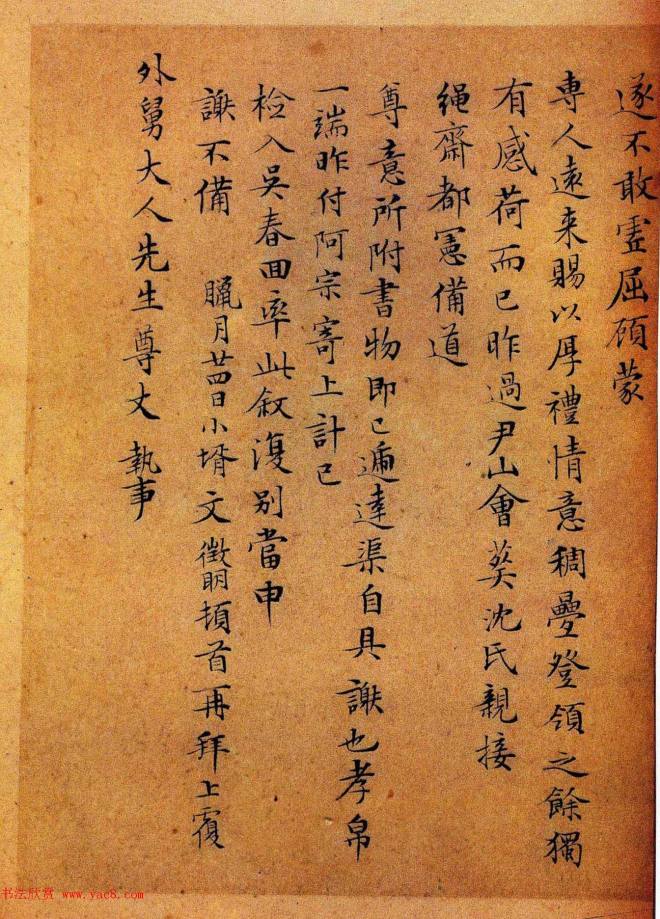 遂不敢虚屈顾蒙
専人遠来賜以厚禮情意稠疊登領之餘獨
有感荷而已昨過尹山會葬沈氏親接
繩齋都憲備道
尊意所附書物即已逓達渠自具謝也孝帛
一端昨付阿宗寄上計已
檢入吳春回率此敘復别當申
謝不備 臘月廿四日小壻文徵明頓首再拜上覆
外舅大人先生尊丈 執事
书法欣赏 www.yac8.com